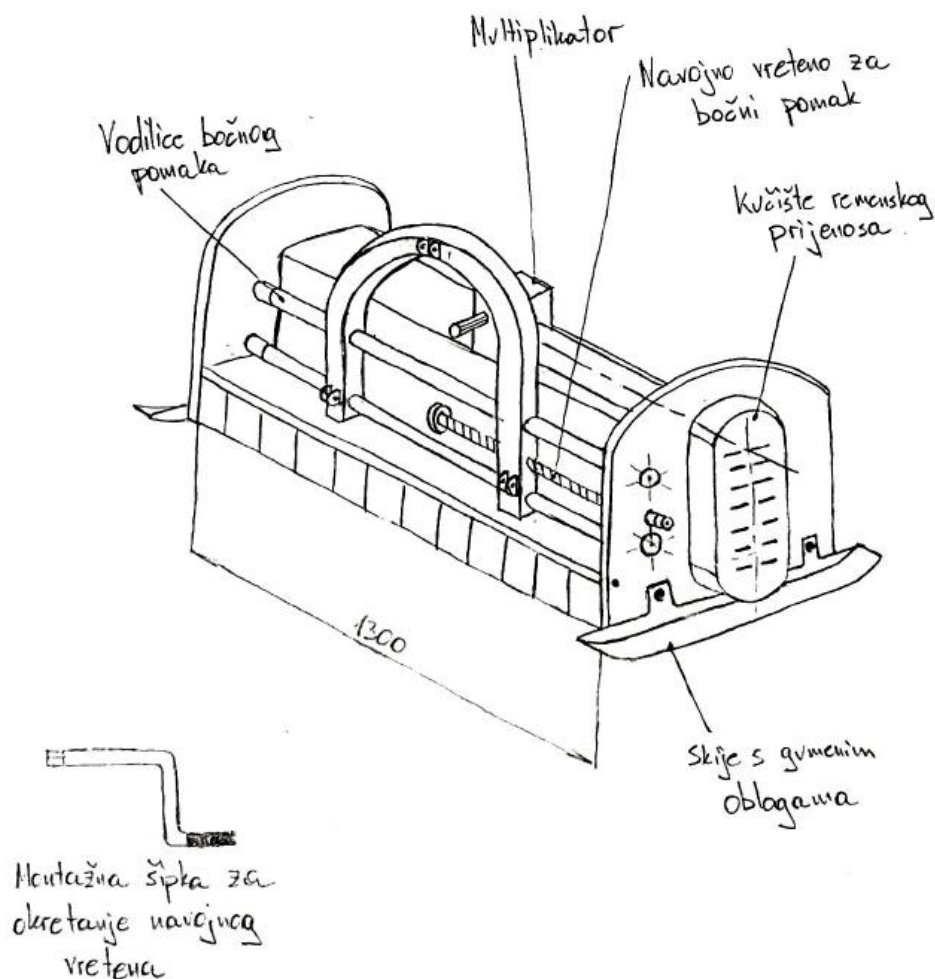 Multiplikator
Navojno vreteno za
bočni pomak
Vodilice bočnog
pomaka
Kućište remenskog
prijenosa
1300
Skije s gumenim
oblogama
Montažna šipka za
okretanje navojnog
vretena